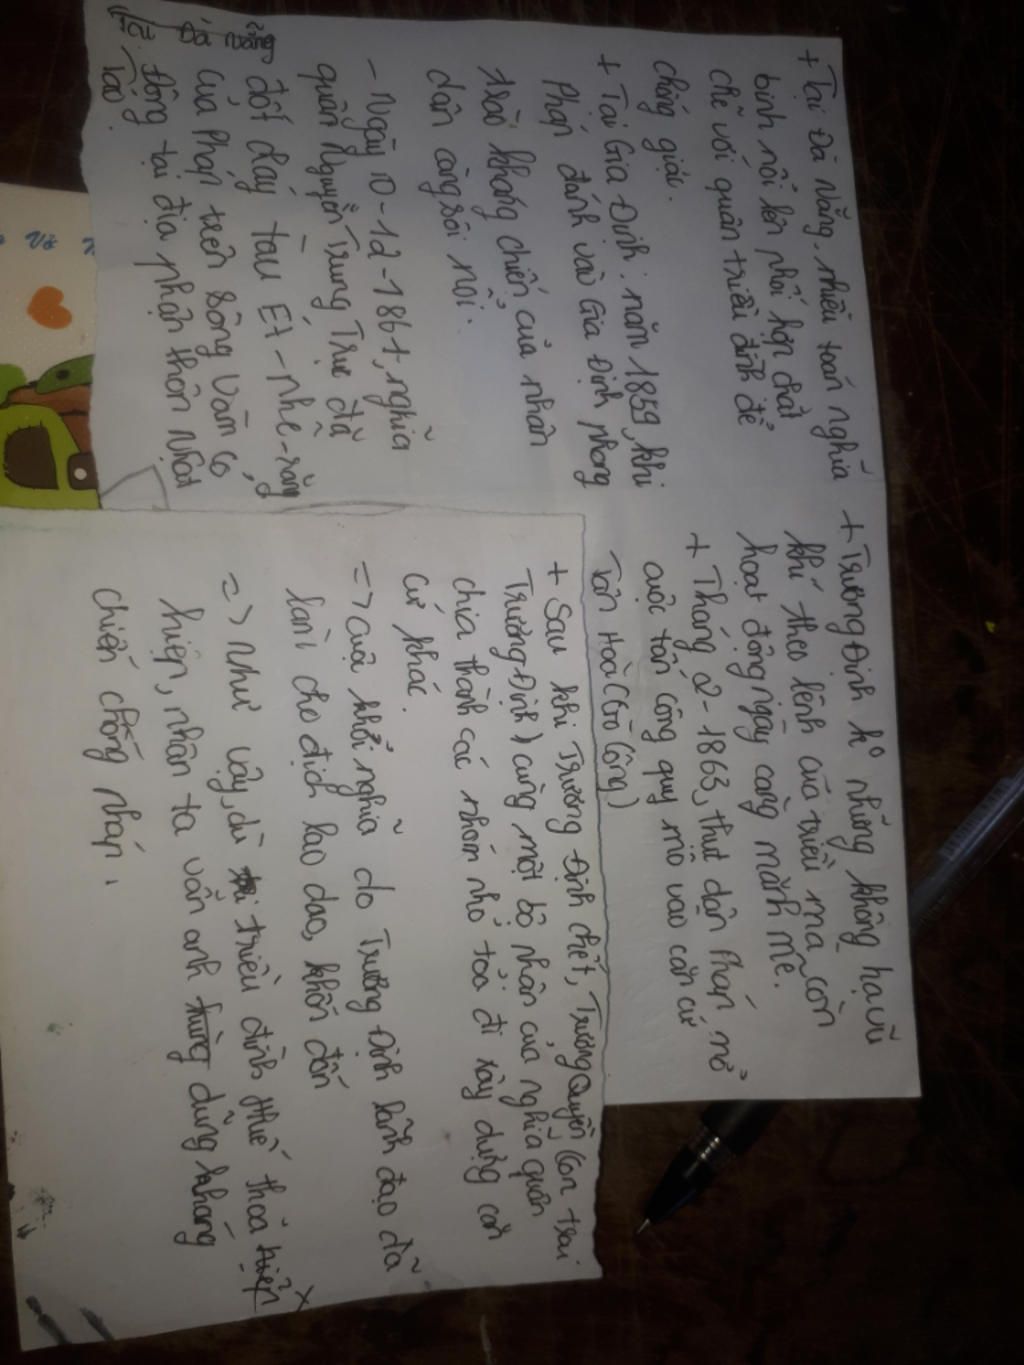 + Tại Đà Nẵng, nhiều toán nghĩa
binh nổi lên phối hợp chặt
chẽ với quân triều đình để
chống giặc.
+ Tại Gia Định: năm 1859, khi
Pháp đánh vào Gia Định phong
trào kháng chiến của nhân
dân càng sôi nổi.
- Ngày 10-12-1861, nghĩa
quân Nguyễn Trung Trực đã
đốt cháy tàu Ét-phê-răng
của Pháp trên sông Vàm Cỏ
Đông tại địa phận thôn Nhật
Tảo.
Đà Nẵng
+ Trương Định k° những không hạ vũ
khí theo lệnh của triều mà còn
hoạt động ngày càng mãnh mẽ.
+ Tháng 2-1863, thực dân Pháp nổ
cuộc tấn công quy mô vào căn cứ
Tân Hoà (Gò Công)
+ Sau khi Trương Định chết, Trương Quyền (con trai
Trương Định) cùng một bộ phận của nghĩa quân
chia thành các nhóm nhỏ tỏa đi xây dựng căn
cứ khác.
=> Cuộc khởi nghĩa do Trương Định lãnh đạo đã
làm cho địch lao dao, khốn đốn
=> Như vậy, dù triều đình Huế thỏa hiện
hiện, nhân ta vẫn anh hùng dũng kháng
chiến chống Pháp.